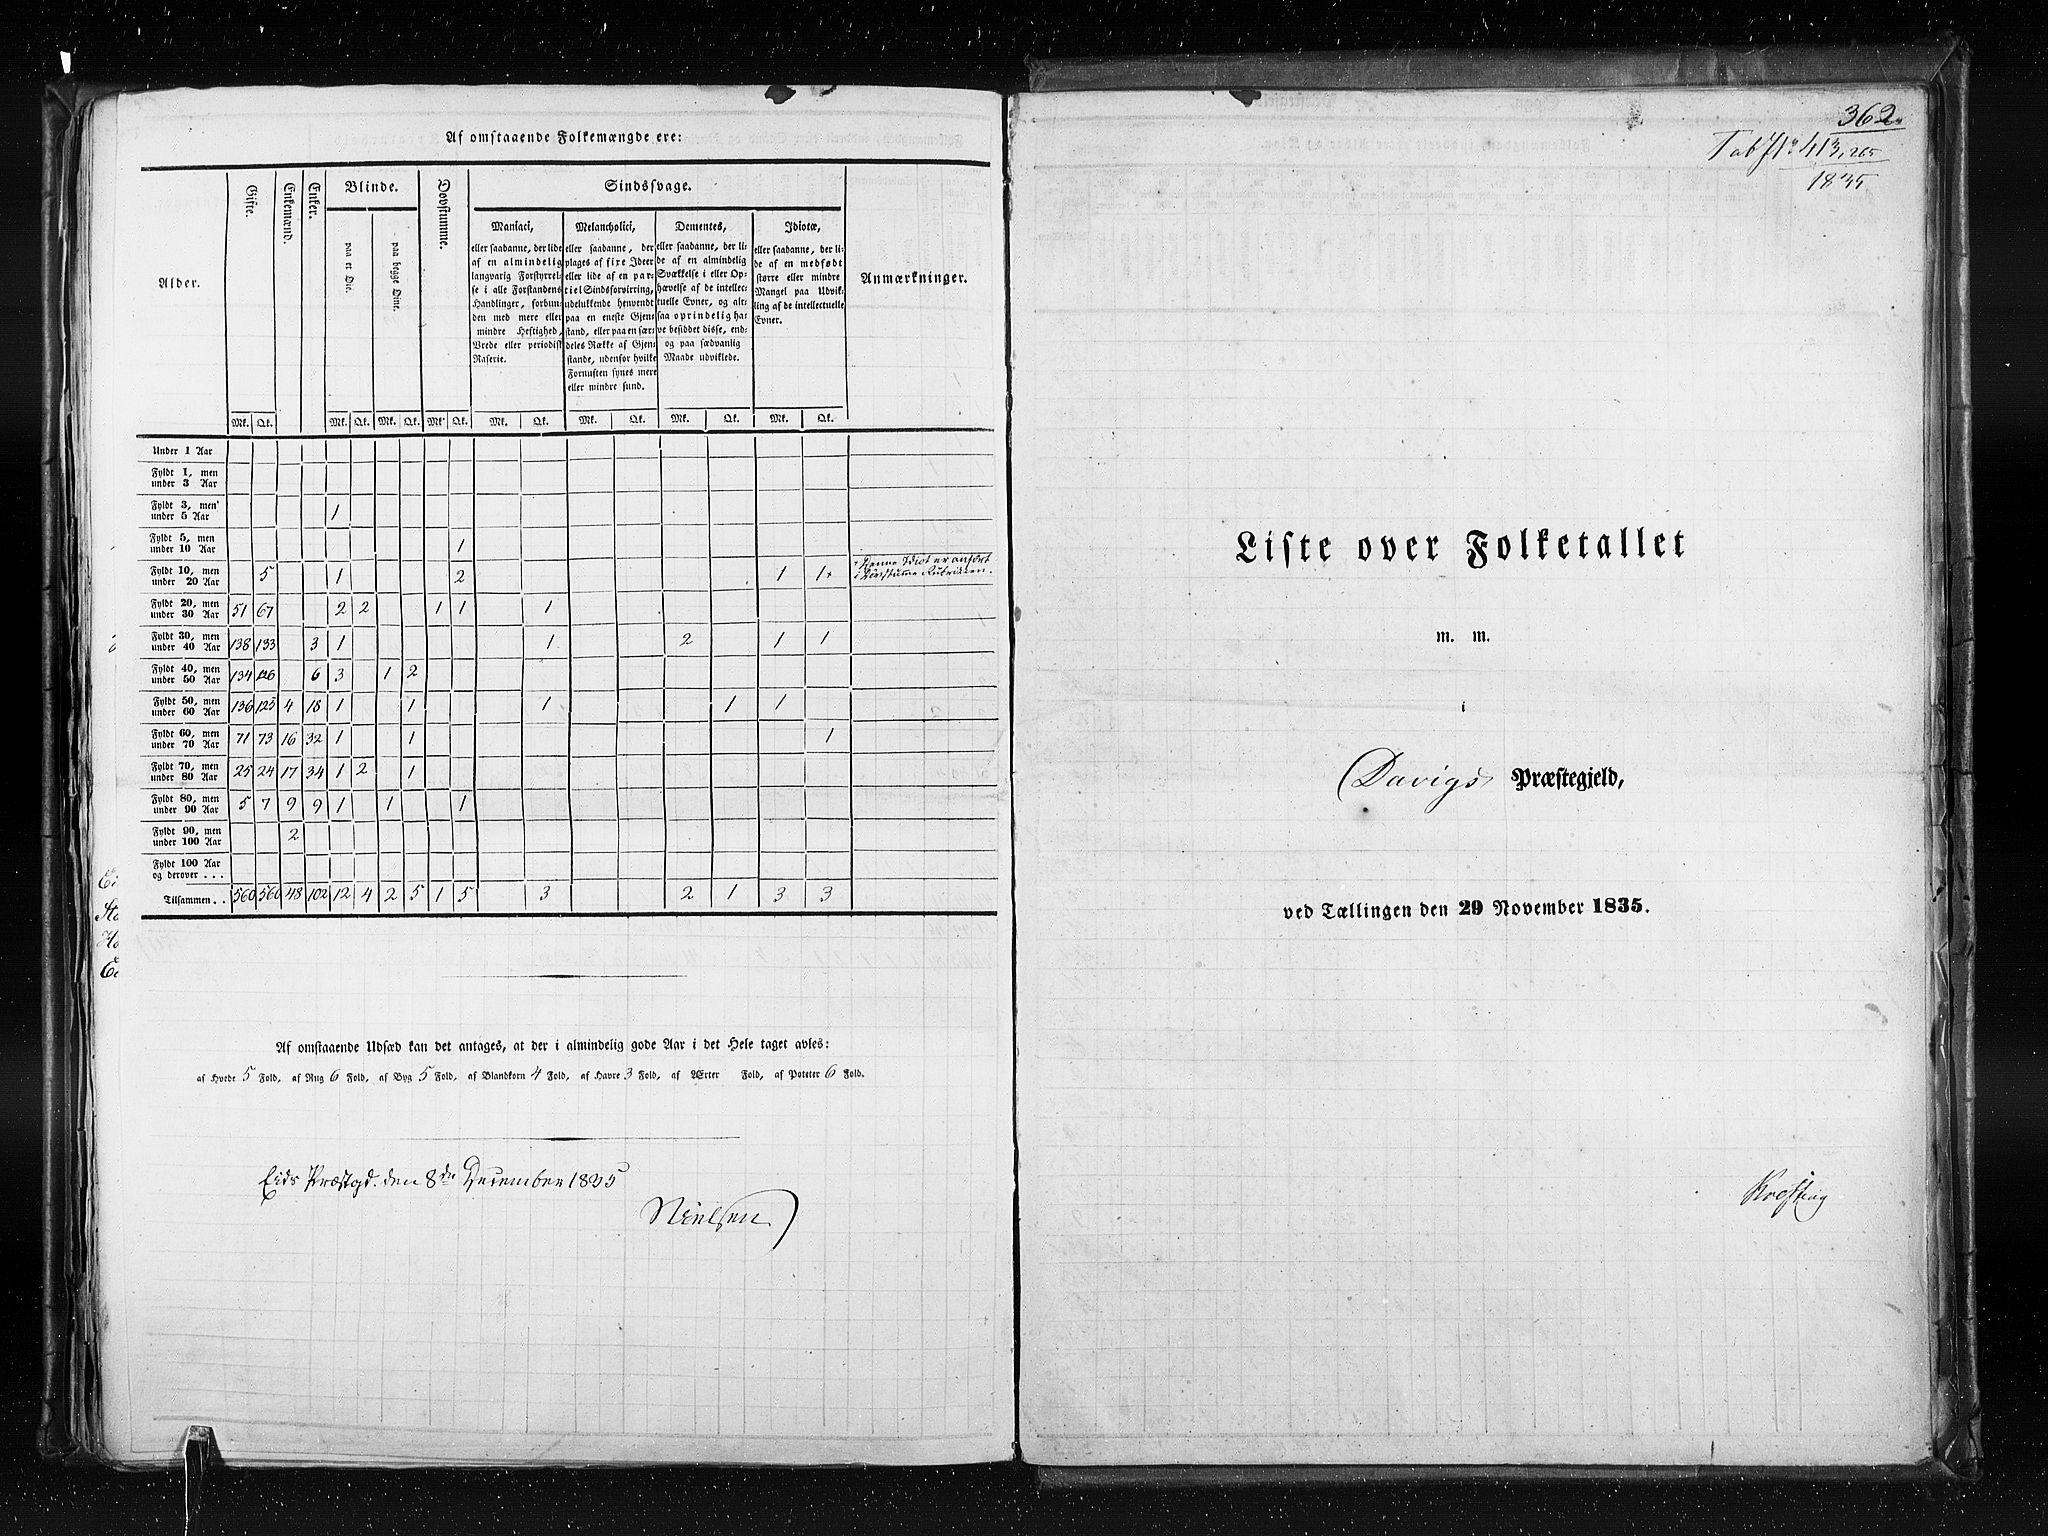 Af omstaaende Folkemængde ere:
Alder.
Gifte.
Enkemænd.
Enker.
Blinde.
paa et Øie.
paa begge Øine.
Døvstumme.
Sindssvage.
Maniaci,
eller saadanne, der lide
af en almindelig
langvarig Forstyrrel-
se i alle Forstandens
Handlinger, forbun-
den med mere eller
mindre Heftighed,
Vrede eller periodisk
Raserie.
Melancholici,
eller saadanne, der
plages af fixe Ideer
eller lide af en par-
tiel Sindsforvirring,
udelukkende henvendt
paa en eneste Gjen-
stand, eller paa en sær-
deles Række af Gjen-
stande, udenfor hvilke
Fornuften synes mere
eller mindre sund.
Dementes,
eller saadanne, der li-
de af en almindelig
Svækkelse i eller Op-
hævelse af de intellec-
tuelle Evner, og alt-
saa oprindelig ha-
ve besiddet disse, end-
og paa sædvanlig
Maade udviklede.
Idiotæ,
eller saadanne, der li-
de af en medfødt
større eller mindre
Mangel paa Udvik-
ling af de intellectuelle
Evner.
Anmærkninger.
Mk. Qk. Mk. Qk. Mk. Qk. Mk. Qk. Mk. Qk. Mk. Qk. Mk. Qk. Mk. Qk.
Under 1 Aar
Fyldt 1, men
under 3 Aar
Fyldt 3, men
under 5 Aar 1
Fyldt 5, men
under 10 Aar 1
Fyldt 10, men
under 20 Aar 5 1 2 1 1+ + Denne Idiot er anført
i Døvstumme Rubrikken.
Fyldt 20, men
under 30 Aar 51 67 2 2 1 1 1
Fyldt 30, men
under 40 Aar 138 133 3 1 1 2 1 1
Fyldt 40, men
under 50 Aar 134 126 6 3 1 2
Fyldt 50, men
under 60 Aar 136 125 4 18 1 1 1 1 1
Fyldt 60, men
under 70 Aar 71 73 16 32 1 1 1
Fyldt 70, men
under 80 Aar 25 24 17 34 1 2 1
Fyldt 80, men
under 90 Aar 5 7 9 9 1 1 1
Fyldt 90, men
under 100 Aar 2
Fyldt 100 Aar
og derover . . .
Tilsammen . . 560 560 48 102 12 4 2 5 1 5 3 2 1 3 3
Af omstaaende Udsæd kan det antages, at der i almindelig gode Aar i det Hele taget avles:
af Hvede 5 Fold, af Rug 6 Fold, af Byg 5 Fold, af Blandkorn 4 Fold, af Havre 3 Fold, af Ærter Fold, af Poteter 6 Fold.
Eids Præstgd. den 8de December 1835
Nielsen
362
Tab N° 413, 265
1835
Liste over Folketallet
m. m.
i
Davigs Præstegjeld,
ved Tællingen den 29 November 1835.